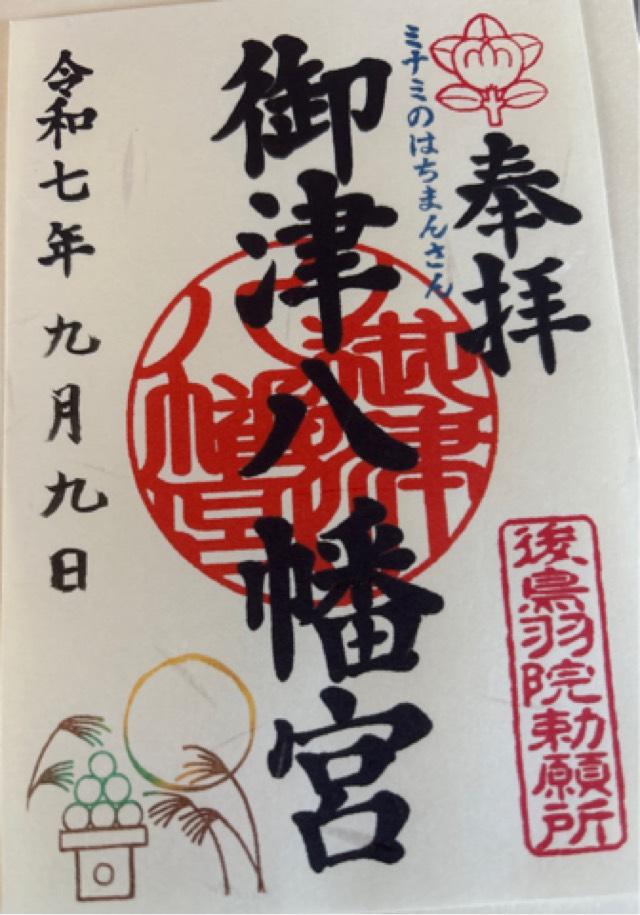 奉拝
ミナミのはちまんさん
御津八幡宮
御津八幡宮
後鳥羽院勅願所
令和七年九月九日